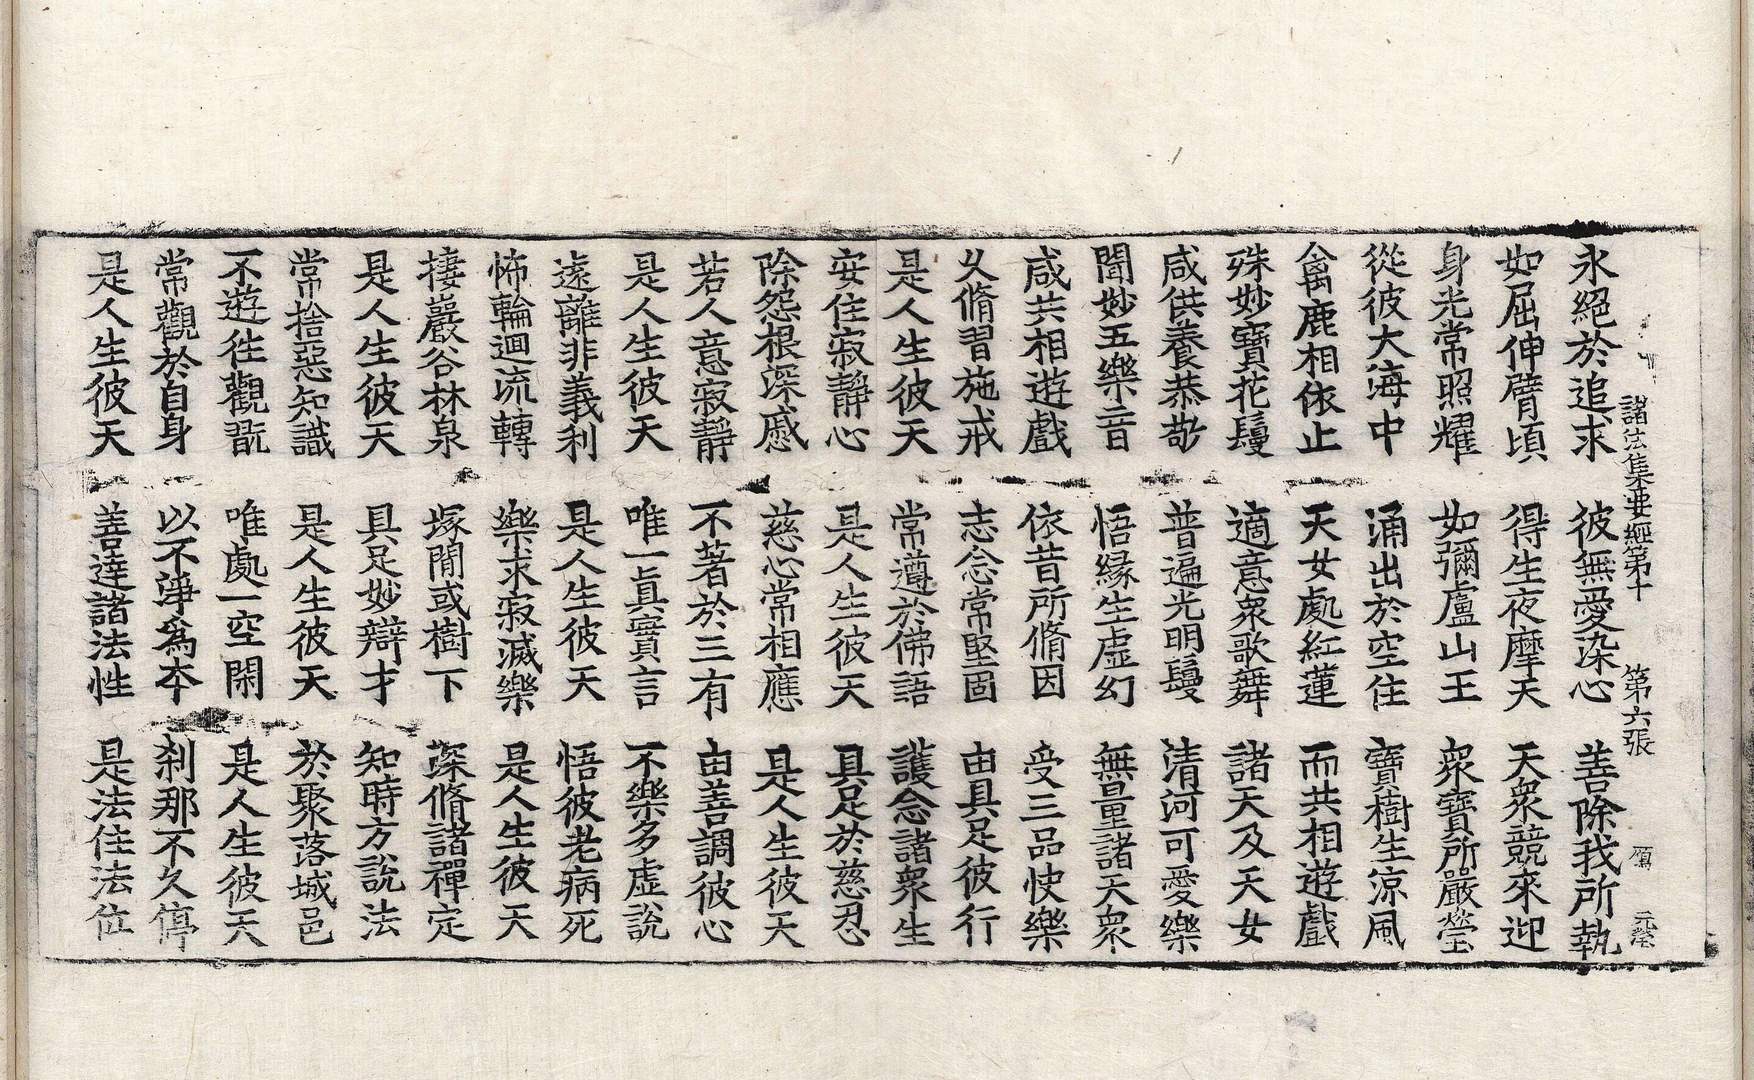 諸法集要經第十 第六張 願
永絕於追求 彼無愛染心 善除我所執
如屈伸臂頃 得生夜摩天 天衆競來迎
身光常照耀 如彌盧山王 衆寶所嚴瑩
從彼大海中 涌出於空住 寶樹生涼風
禽鹿相依止 天女處紅蓮 而共相遊戲
殊妙寶花鬘 適意衆歌舞 諸天及天女
咸供養恭敬 普遍光明鬘 清河可愛樂
聞妙五樂音 悟緣生虛幻 無量諸天衆
咸共相遊戲 依昔所脩因 受三品快樂
久脩習施戒 志念常堅固 由具足彼行
是人生彼天 常遵於佛語 護念諸衆生
安住寂靜心 是人生彼天 具足於慈忍
除怨根深慼 慈心常相應 是人生彼天
若人意寂靜 不著於三有 由善調彼心
是人生彼天 唯一眞實言 不樂多虛說
遠離非義利 是人生彼天 悟彼老病死
怖輪迴流轉 樂求寂滅樂 是人生彼天
捿巖谷林泉 塚閒或樹下 深脩諸禪定
是人生彼天 具足妙辯才 知時方說法
常捨惡知識 是人生彼天 於聚落城邑
不遊往觀翫 唯處一空閑 是人生彼天
常觀於自身 以不淨爲本 剎那不久停
是人生彼天 善達諸法性 是法住法位